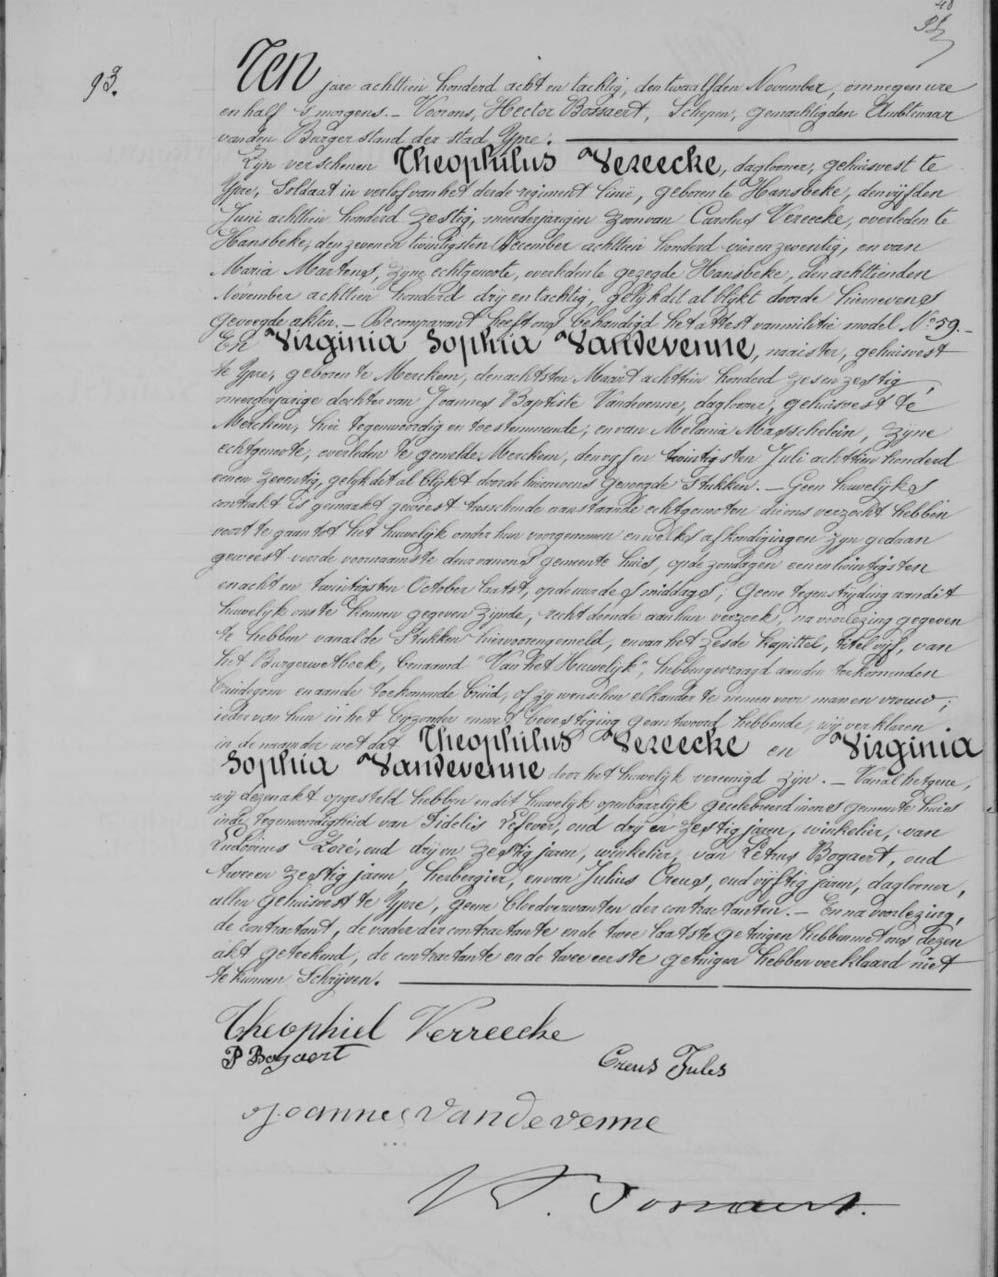 48
93.
Ten jare achttien honderd acht en tachtig, den twaalfden November, om negen ure
en half 's morgens. – Voor ons, Hector Bossaert, Schepen, gemachtigden Ambtenaar
van den Burgerstand der stad Ypre.
Zyn verschenen Theophilus Vereecke, daglooner, gehuisvest te
Ypre, Soldaat in verlof van het derde regiment Linië, geboren te Hansbeke, den vyfden
Juni achttien honderd zestig, meerderjarigen zoon van Carolus Vereecke, overleden te
Hansbeke, den zeven en twintigsten December achttien honderd vier en zeventig, en van
Maria Martens, zyne echtgenote, overleden te gezegde Hansbeke, den achttienden
November achttien honderd drij en tachtig, gelyk dit al blykt door de hiernevens
gevoegde akten. – De comparant heeft ons behandigd het attest van militie model No 59. –
En Virginia Sophia Vandevenne, naaister, gehuisvest
te Ypre, geboren te Merckem, den achtsten Maart achttien honderd zes en zestig,
meerderjarige dochter van Joannes Baptiste Vandevenne, daglooner, gehuisvest te
Merckem, hier tegenwoordig en toestemmende, en van Melania Masschelein, zyne
echtgenote, overleden te gemelde Merckem, den vyf en twintigsten Juli achttien honderd
een en zeventig, gelyk dit al blykt door de hiernevens gevoegde stukken. – Geen huwelyks
contrakt is gemaakt geweest tusschen de aanstaande echtgenoten die ons verzocht hebben
voort te gaan tot het huwelijk onder hun voorgenomen en welks afkondigingen zyn gedaan
geweest voor de voornaamste deur van ons gemeente huis, op de zondagen een en twintigsten
en acht en twintigsten October laatst, op de ure des middags; Geene tegenstryding aan dit
huwelijk ons te kennen gegeven zynde, recht doende aan hun verzoek, na voorlezing gegeven
te hebben van al de stukken hiervooren gemeld, en van het zesde kapittel, titel vyf, van
het Burgerwetboek, benaamd "Van het Huwelijk", hebben gevraagd aan den toekomenden
bruidegom en aan de toekomende bruid, of zy wenschen elkander te nemen voor man en vrouw;
ieder van hun in het byzonder en met bevestiging geantwoord hebbende, wy verklaren
in de naam der wet dat Theophilus Vereecke en Virginia
Sophia Vandevenne door het huwelijk vereenigd zyn. – Van al hetgene,
wy dezen akt opgesteld hebben en dit huwelijk openbaarlijk gecelebreerd in ons gemeente huis
in de tegenwoordigheid van Fidelis Lefever, oud drij en zestig jaren, winkelier, van
Ludovicus Zoré, oud drij en zestig jaren, winkelier, van Petrus Bogaert, oud
twee en zestig jaren, herbergier, en van Julius Creus, oud vijftig jaren, daglooner,
allen gehuisvest te Ypre, geene bloedverwanten der contractanten. – En na voorlezing,
de contractant, de vader der contractante en de twee laatste getuigen hebben met ons dezen
akt geteekend, de contractante en de twee eerste getuigen hebben verklaard niet
te kunnen schrijven.
Theophiel Verreecke
P Bogaert Creus Jules
Joannes Vandevenne
Bossaert.